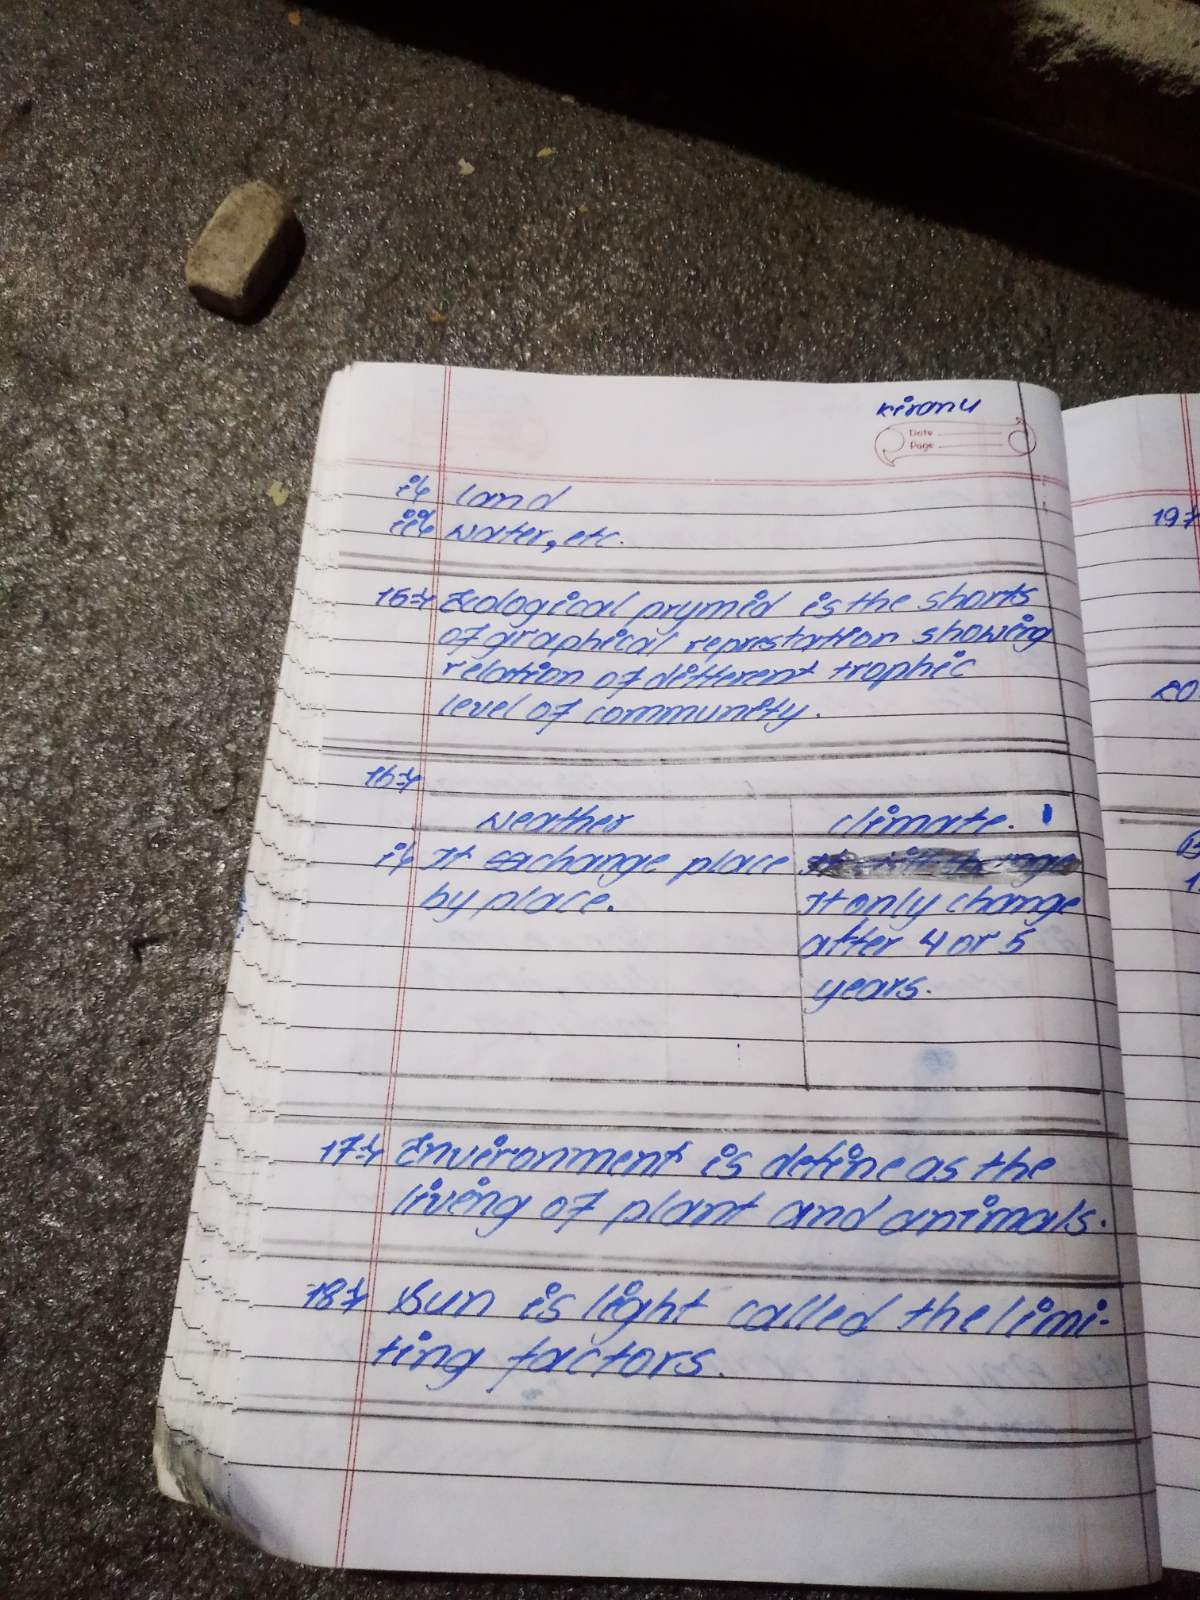 kiranu
Date
Page
i) land
ii) water, etc.
15) Ecological prymid is the shorts
of graphical represtation showing
relation of different trophic
level of community.
16)
weather climate.
i) It change place
by place.
It only change
after 4 or 5
years.
17) Environment is define as the
living of plant and animals.
18) Sun is light called the limi-
ting factors.
197
20